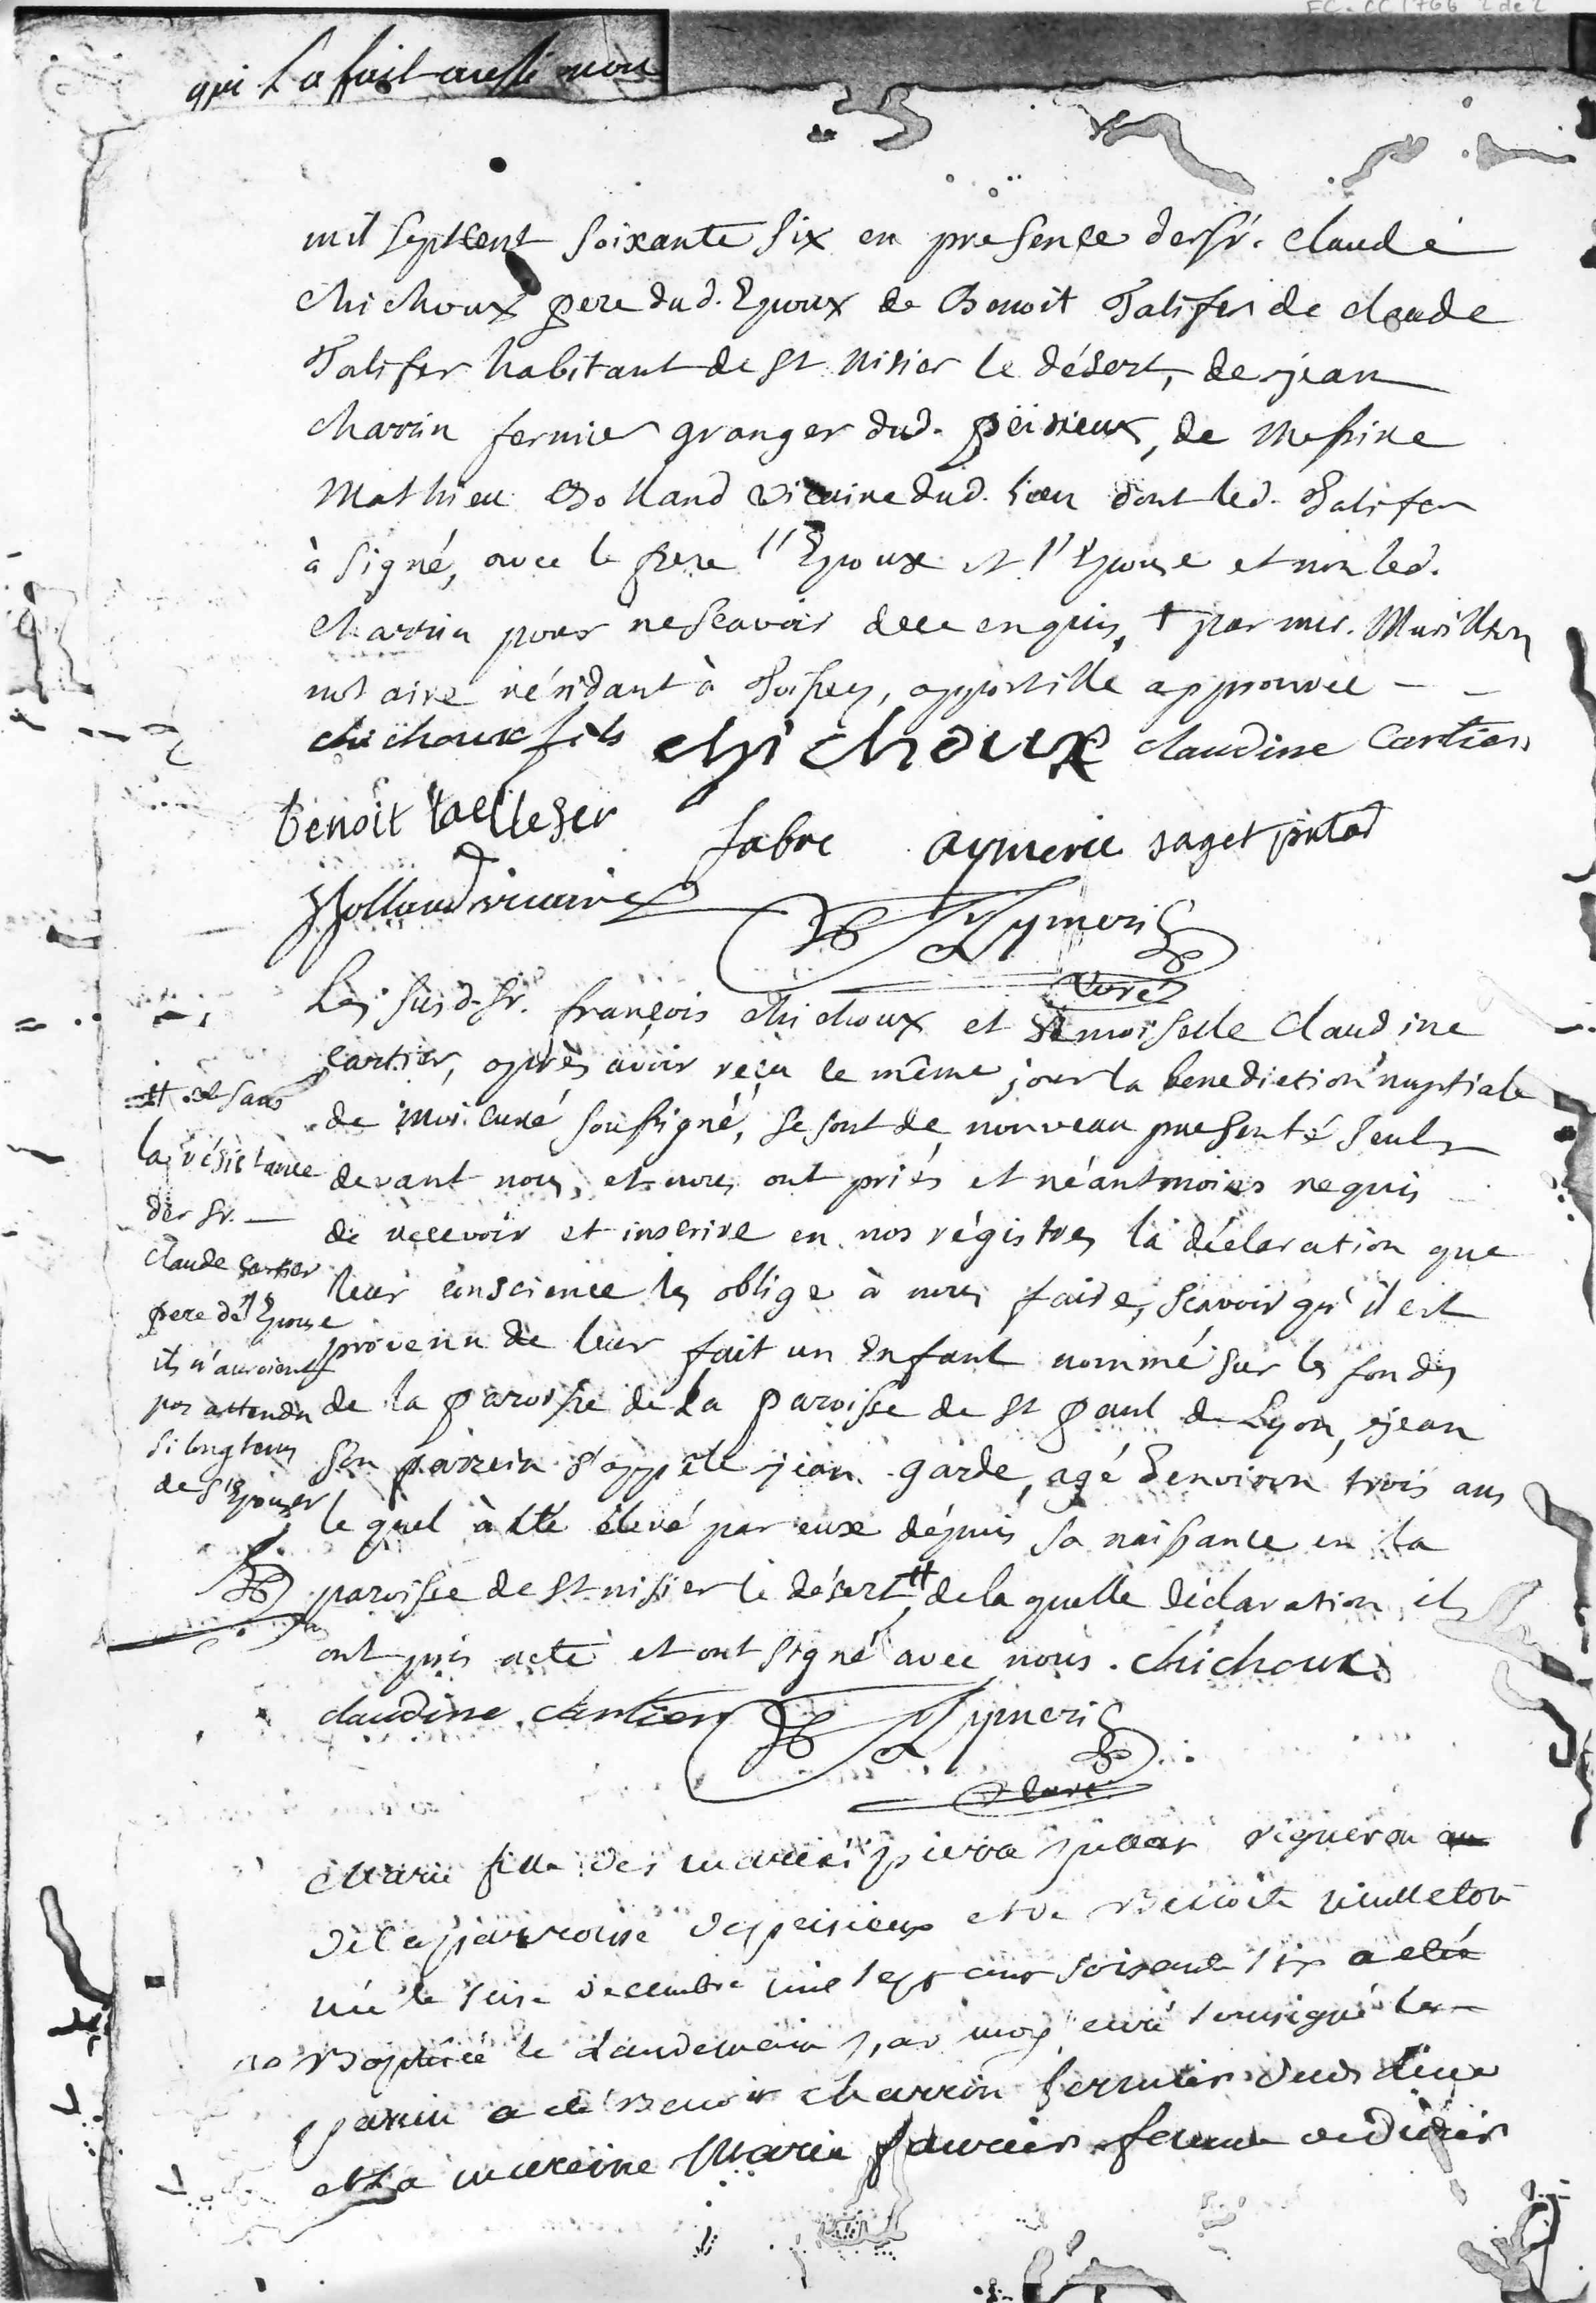 EC. CC 1766 2 de 2
qui La fait aussi nou
mil septcent soixante six en presence des sr. claude
chichoux pere dud. Epoux de Benoit Talifer de claude
Talifer habitant de St Nisier le désert, de jean
charrin fermier granger dud. peisieux, de Messire
Mathieu Bolland vicaire dud. lieu dont led. Talifer
à signé, avec le pere l'Epoux et l'Epouse et non led.
charrin pour ne scavoir de ce enquis, + par me.
notaire résidant à Toissey, appostille approuvée
chichoux fils chichoux claudine Cartier
benoit taillefer fabre aymeric saget
Bolland vicaire Aymeric
curé
Les susd. Sr. françois chichoux et Demoiselle Claudine
cartier, après avoir reçu le même jour la benediction nuptiale
de moi curé soussigné, se sont de nouveau presenté seuls
devant nous, et nous ont priés et néantmoins requis
de recevoir et inscrire en nos régistres la déclaration que
leur conscience les oblige à nous faire, scavoir qu'il est
provenu de leur fait un Enfant nommé sur les fonds
de la paroisse de La paroisse de St paul de Lyon, jean
son parrein s'appele jean garde, agé d'environ trois ans
lequel à été élevé par eux dépuis sa naissance en la
paroisse de St nisier le désert # de la quelle déclaration ils
ont pris acte et ont signé avec nous. chichoux
claudine Cartier Aymeric
curé
# et sans
la résistance
der Sr.
claude cartier
pere de l'Epouse
ils n'auroient
pas attendu
si longtems
de s'Epouser
Marie fille des mariés pierre vigneron
de la parroisse de peisieux et de Benoite
née le seise decembre mil sept cent soixante six a eté
Baptisée le Landemain par moy curé soussigné le
parin a eté Benoit charrin fermier
et La mareine Marie femme